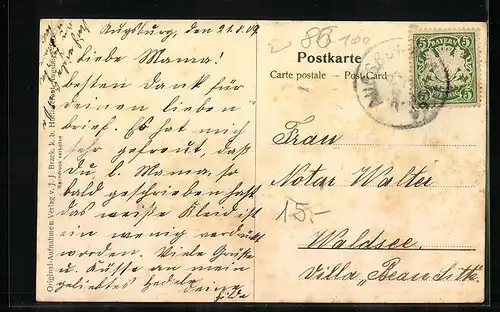 Augsburg, den 21.8.09
Liebe Mama!
besten Dank für
deinen lieben
brief. Es hat mich
sehr gefreut, daß
du, l. Mama, so
bald geschrieben hast
das weiße Kleid ist
ein wenig verdrückt
worden. Viele Grüße
u. Küsse an mein
geliebtes
deine
Hilde
Original-Aufnahme u. Verlag v. J. J. Brack, k. b.
Nachdruck verboten
86
100
Postkarte
Carte postale - Post Card
BAYERN
5 5
PFENNIG
Frau
Notar Walter
15.-
Waldsee.
Villa „Beaudith."